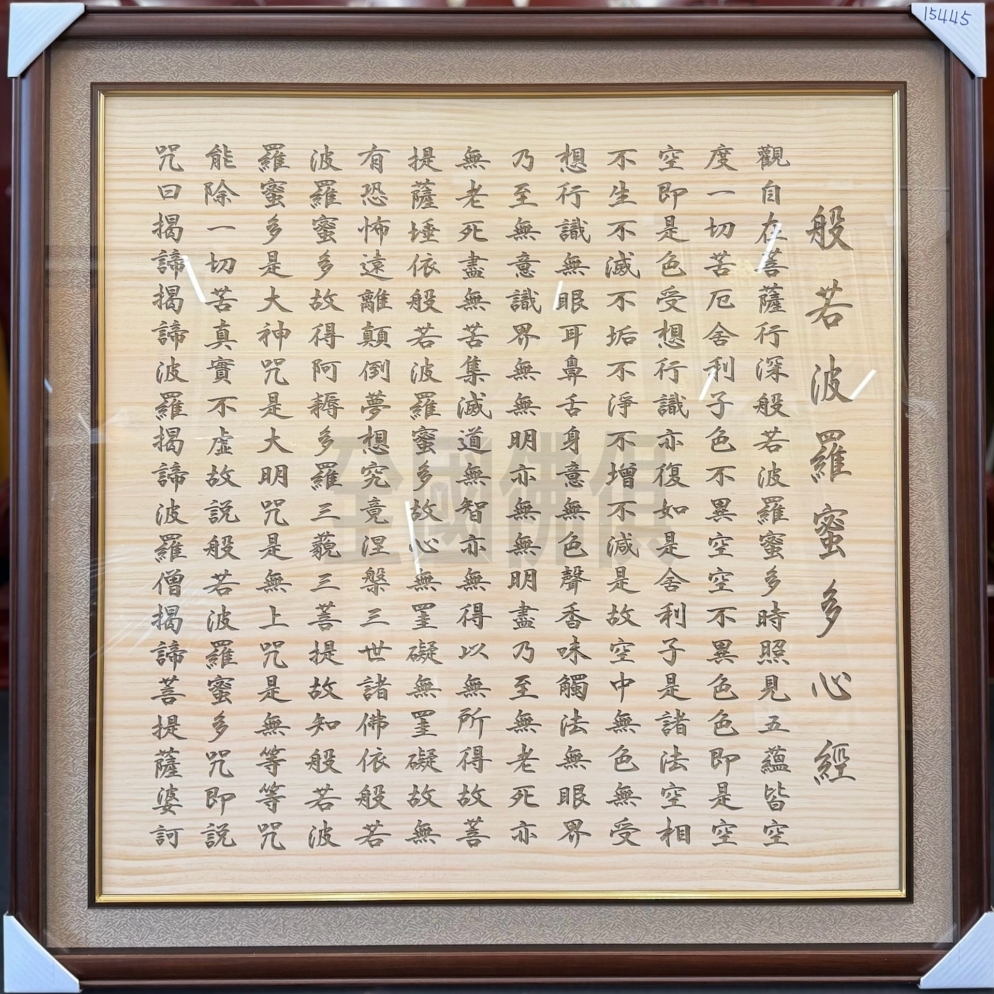 15445
般若波羅蜜多心經
觀自在菩薩行深般若波羅蜜多時照見五蘊皆空
度一切苦厄舍利子色不異空空不異色色即是空
空即是色受想行識亦復如是舍利子是諸法空相
不生不滅不垢不淨不增不減是故空中無色無受
想行識無眼耳鼻舌身意無色聲香味觸法無眼界
乃至無意識界無無明亦無無明盡乃至無老死亦
無老死盡無苦集滅道無智亦無得以無所得故菩
提薩埵依般若波羅蜜多故心無罣礙無罣礙故無
有恐怖遠離顛倒夢想究竟涅槃三世諸佛依般若
波羅蜜多故得阿耨多羅三藐三菩提故知般若波
羅蜜多是大神咒是大明咒是無上咒是無等等咒
能除一切苦真實不虛故說般若波羅蜜多咒即說
咒曰揭諦揭諦波羅揭諦波羅僧揭諦菩提薩婆訶
全國佛俱